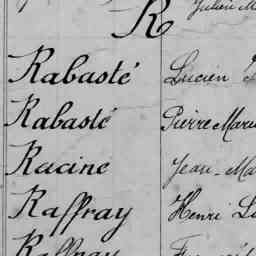 Julien M
R
Rabasté Lucien
Rabasté Pierre Marie
Racine Jean-Ma
Raffray Henri L
Raffray